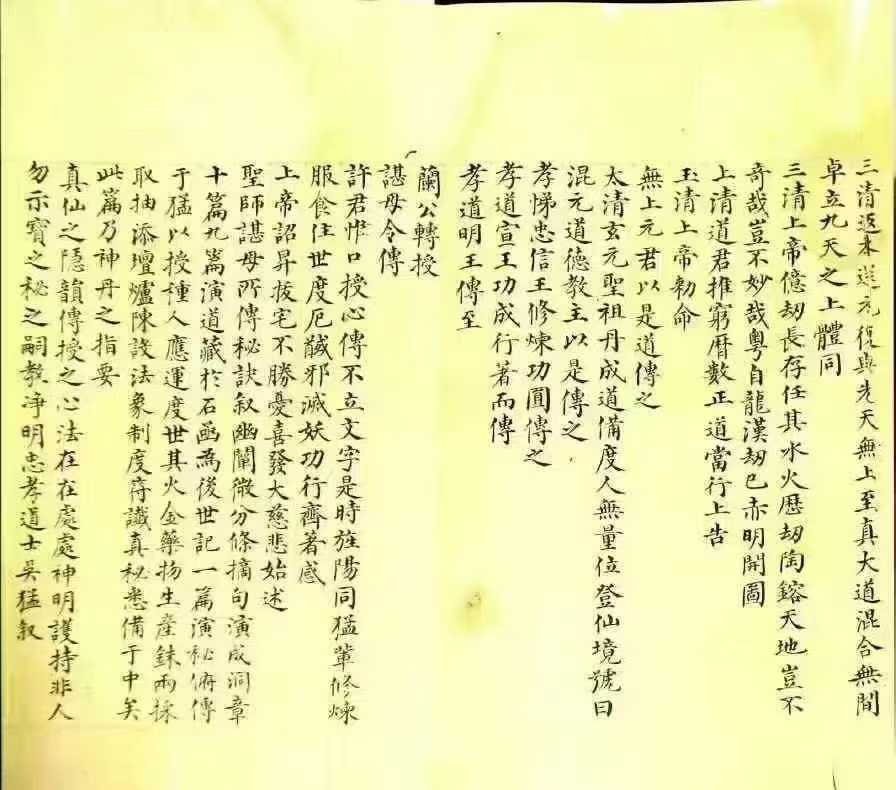 三清返本還元復與先天無上至真大道混合無間
卓立九天之上體同
三清上帝億劫長存任其水火歷劫陶鎔天地豈不
奇哉豈不妙哉粵自龍漢劫已赤明開圖
上清道君推窮曆數正道當行上告
玉清上帝勑命
無上元君以是道傳之
太清玄元聖祖丹成道備度人無量位登仙境號曰
混元道德教主以是傳之
孝悌忠信王修煉功圓傳之
孝道宣王功成行著而傳
孝道明王傳至
蘭公轉授
諶母令傳
許君惟口授心傳不立文字是時旌陽同猛輩修煉
服食住世度厄馘邪滅妖功行齊著感
上帝詔昇拔宅不勝憂喜發大慈悲始述
聖師諶母所傳秘訣叙幽闡微分條摘句演成洞章
十篇九篇演道藏於石函為後世記一篇演秘俯傳
于猛以授種人應運度世其火金藥物生產銖兩採
取抽添壇爐陳設法象制度符讖真秘悉備于中矣
此篇乃神丹之指要
真仙之隱韻傳授之心法在在處處神明護持非人
勿示寶之秘之嗣教净明忠孝道士吳猛叙